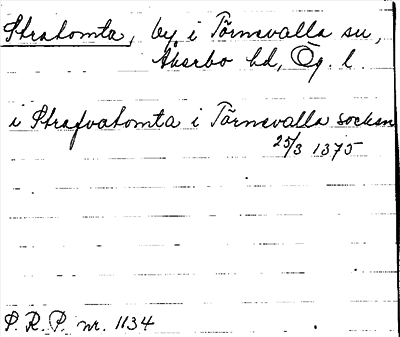 Stratomta, by i Törnevalla sn,
Åkerbo hd, Ög. l.
i Strafvatomta i Törnevalla socken
25/3 1375
P. R. P. nr. 1134